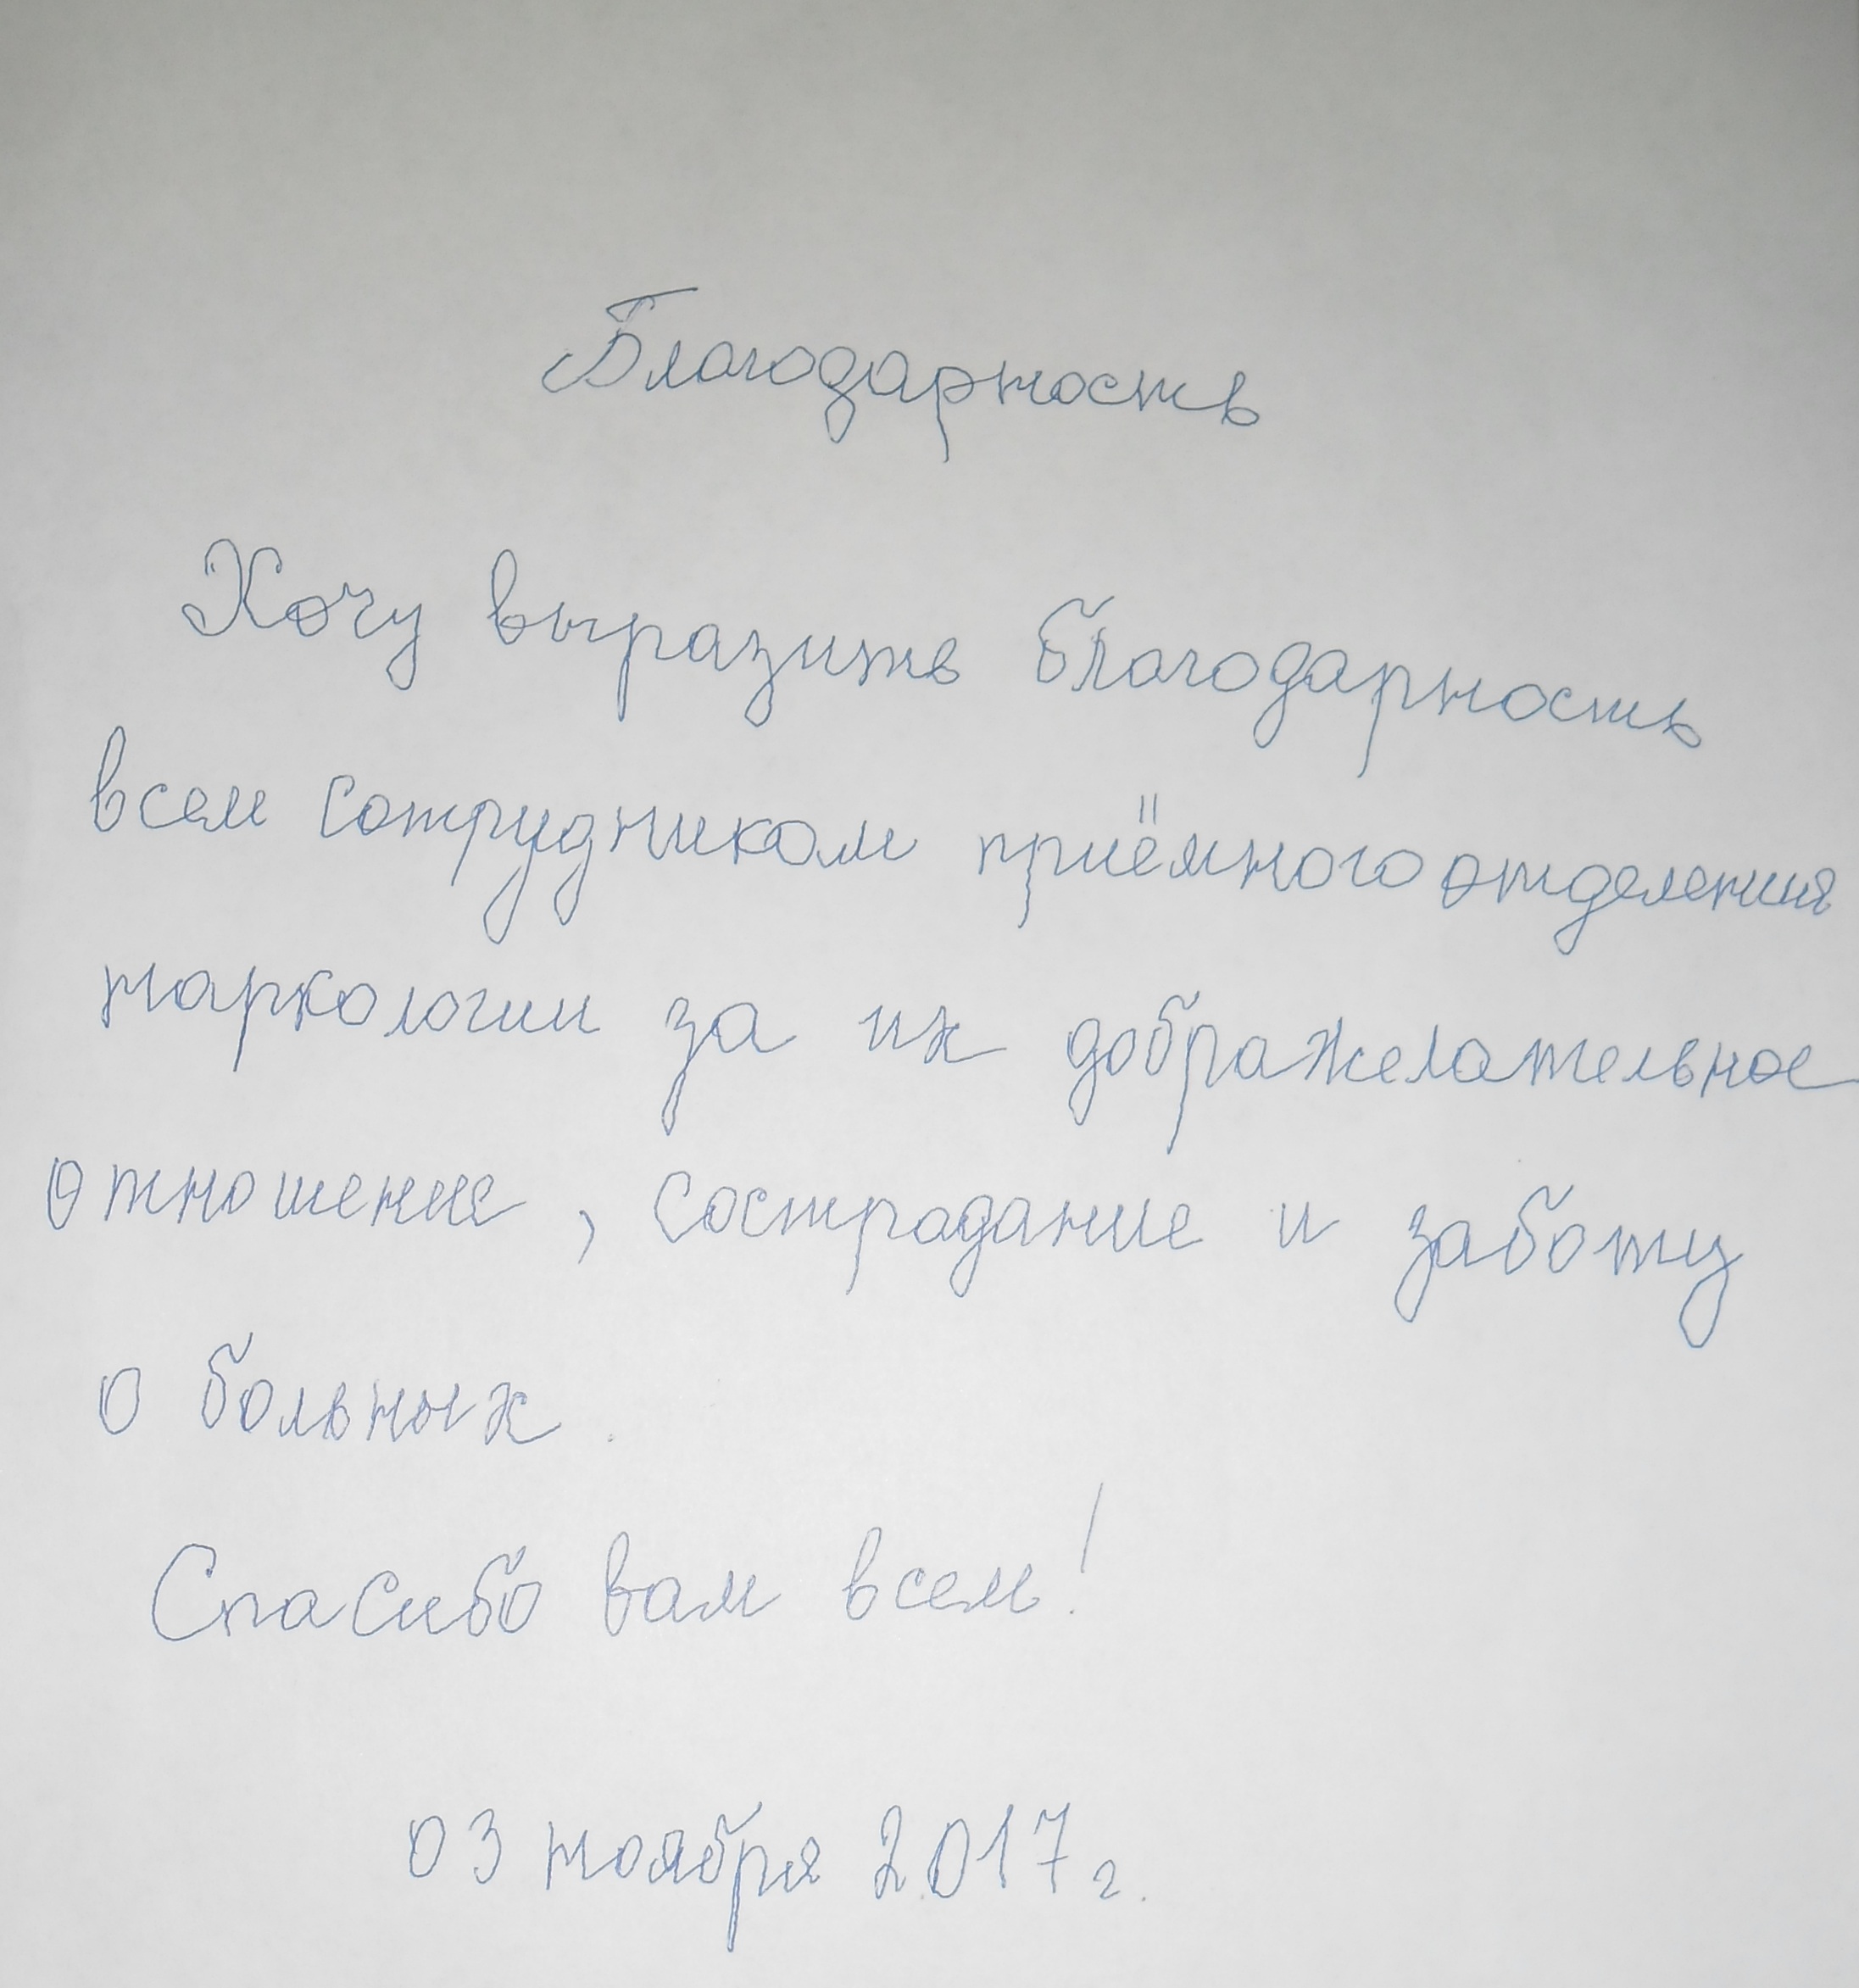 Благодарность
Хочу выразить благодарность
всем сотрудником приёмного отделения
наркологии за их дображелательное
отношение, сострадание и заботу
о больных.
Спасибо вам всем!
03 ноября 2017 г.